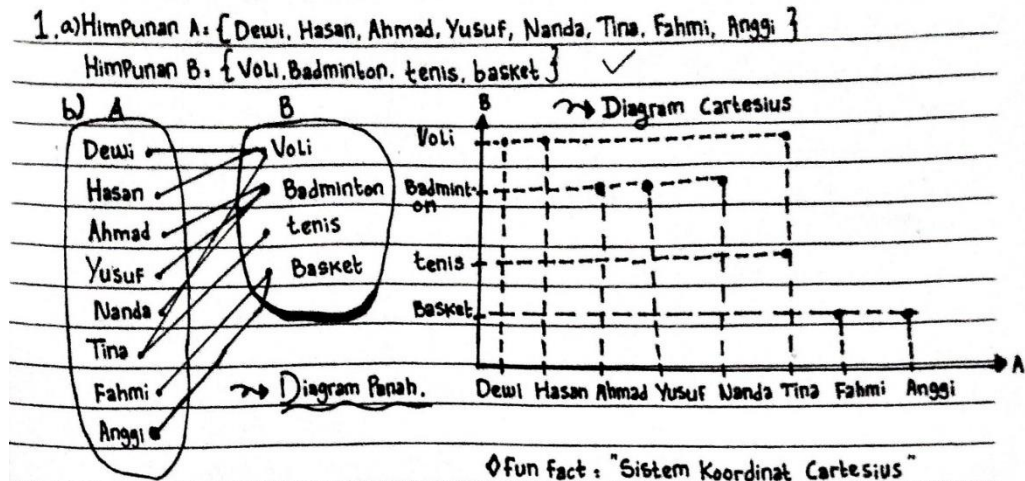 1. a) Himpunan A: {Dewi, Hasan, Ahmad, Yusuf, Nanda, Tina, Fahmi, Anggi}
Himpunan B: {Voli, Badminton, tenis, basket} ✓
b) A B
Dewi
Hasan
Ahmad
Yusuf
Nanda
Tina
Fahmi
Anggi
Voli
Badminton
tenis
Basket
→ Diagram Panah.
→ Diagram Cartesius
B
Voli
Badmint-
on
tenis
Basket
A
Dewi Hasan Ahmad Yusuf Nanda Tina Fahmi Anggi
◊ fun fact : "Sistem Koordinat Cartesius"